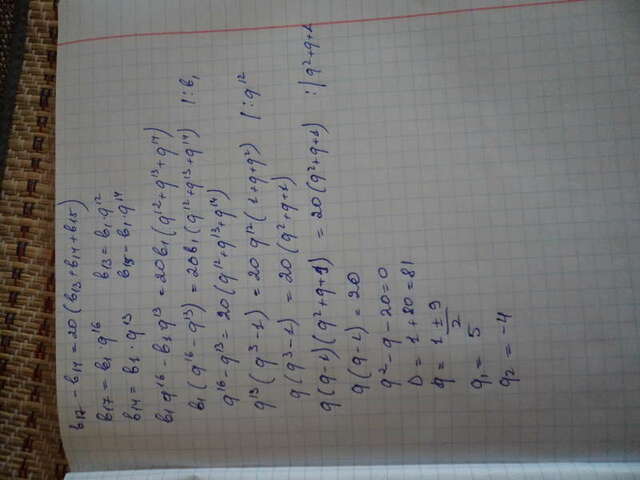 b₁₇ - b₁₄ = 20 (b₁₃ + b₁₄ + b₁₅)
b₁₇ = b₁ · q¹⁶ b₁₃ = b₁ · q¹²
b₁₄ = b₁ · q¹³ b₁₅ = b₁ · q¹⁴
b₁ q¹⁶ - b₁ q¹³ = 20b₁ (q¹² + q¹³ + q¹⁴)
b₁ (q¹⁶ - q¹³) = 20b₁ (q¹² + q¹³ + q¹⁴) | : b₁
q¹⁶ - q¹³ = 20 (q¹² + q¹³ + q¹⁴)
q¹³ (q³ - 1) = 20 q¹² (1 + q + q²) | : q¹²
q (q³ - 1) = 20 (q² + q + 1)
q (q - 1) (q² + q + 1) = 20 (q² + q + 1) : | q² + q + 1
q (q - 1) = 20
q² - q - 20 = 0
D = 1 + 80 = 81
q = (1 ± 9)/2
q₁ = 5
q₂ = -4